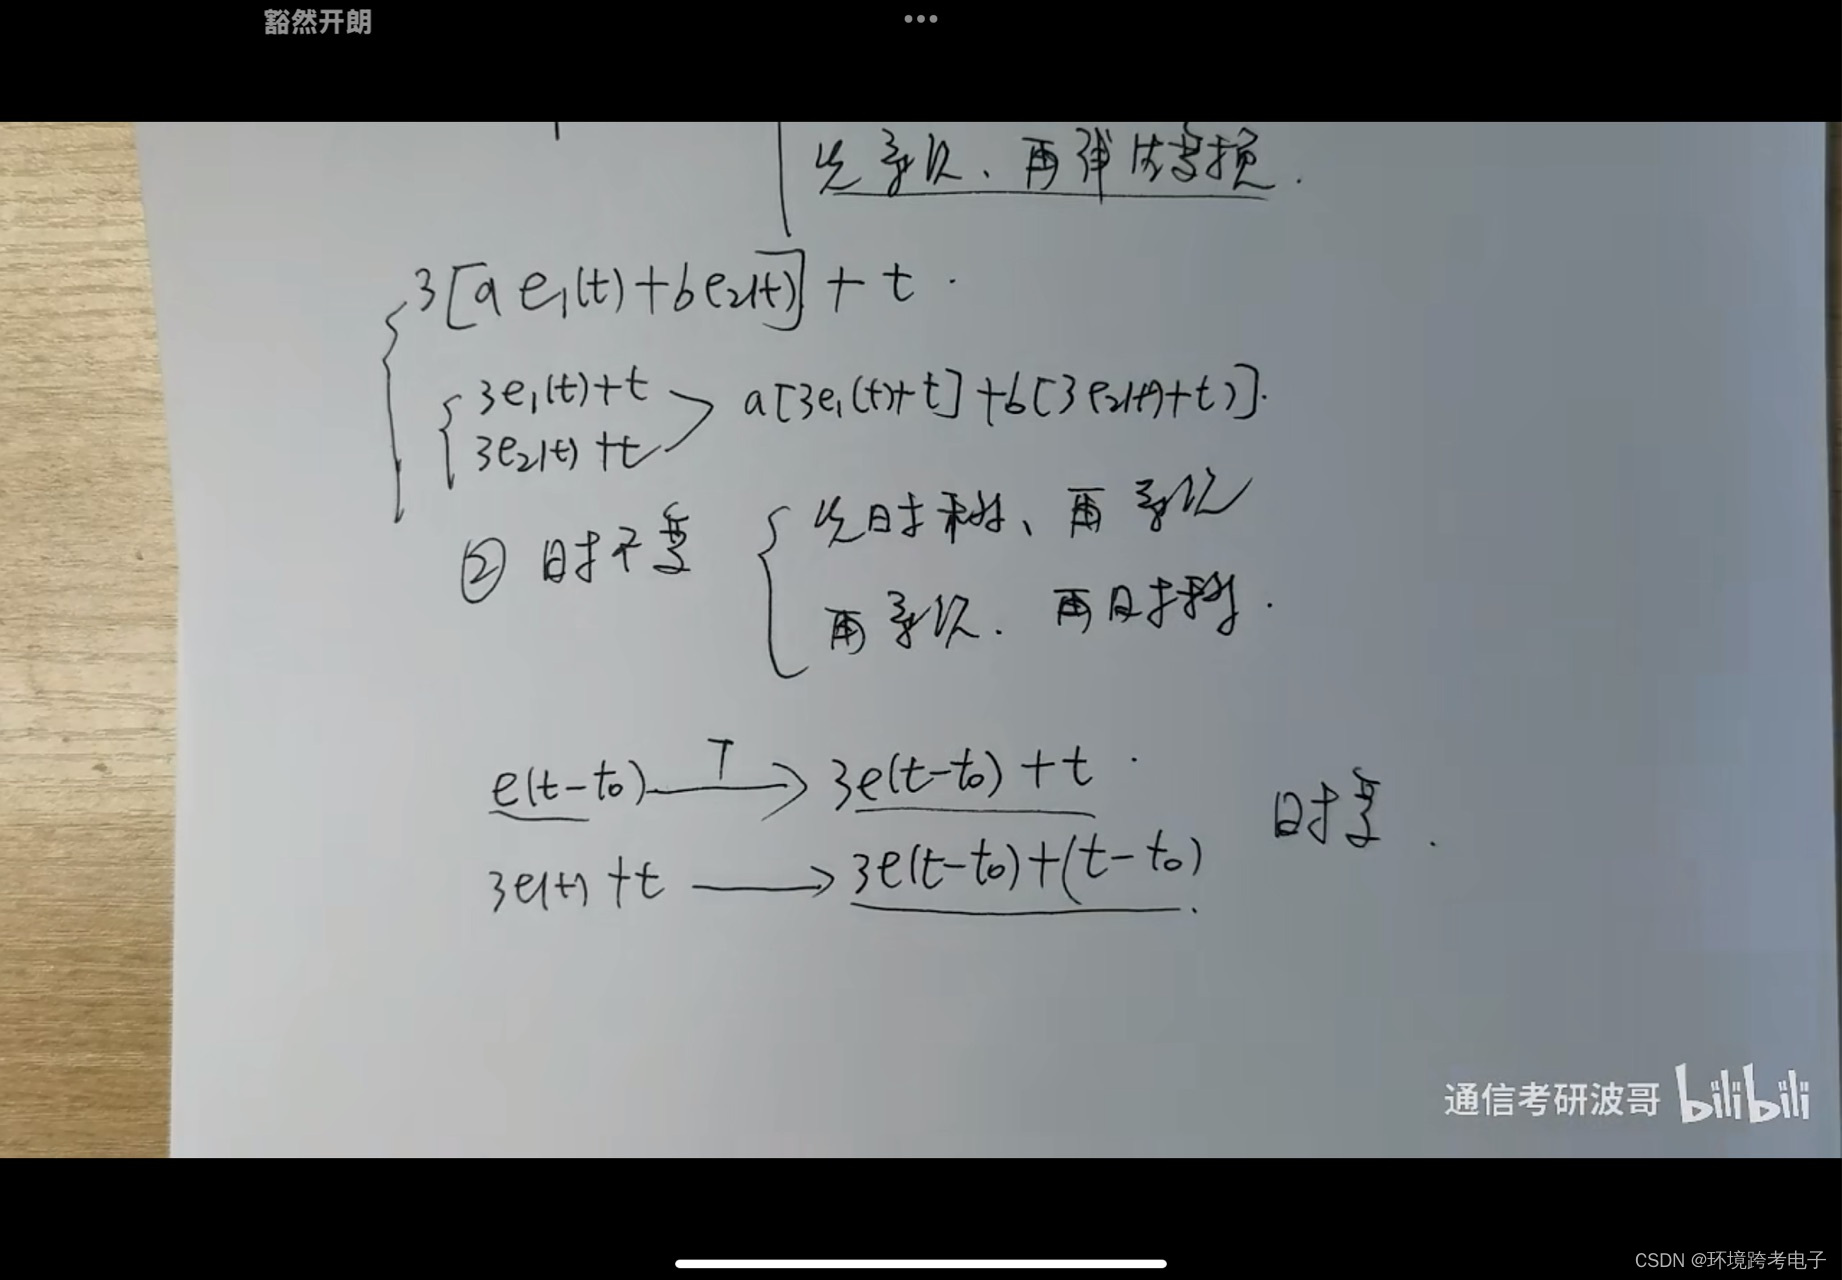 豁然开朗
先系统、再线性变换.
3[a e₁(t)+b e₂(t)] + t .
3e₁(t)+t
3e₂(t)+t
a[3e₁(t)+t] +b[3e₂(t)+t)].
② 时不变
先时移、再系统
再系统. 再时移.
e(t-t₀) T → 3e(t-t₀)+t .
3e(t)+t → 3e(t-t₀)+(t-t₀) .
时变 .
通信考研波哥 bilibili
CSDN @环境跨考电子